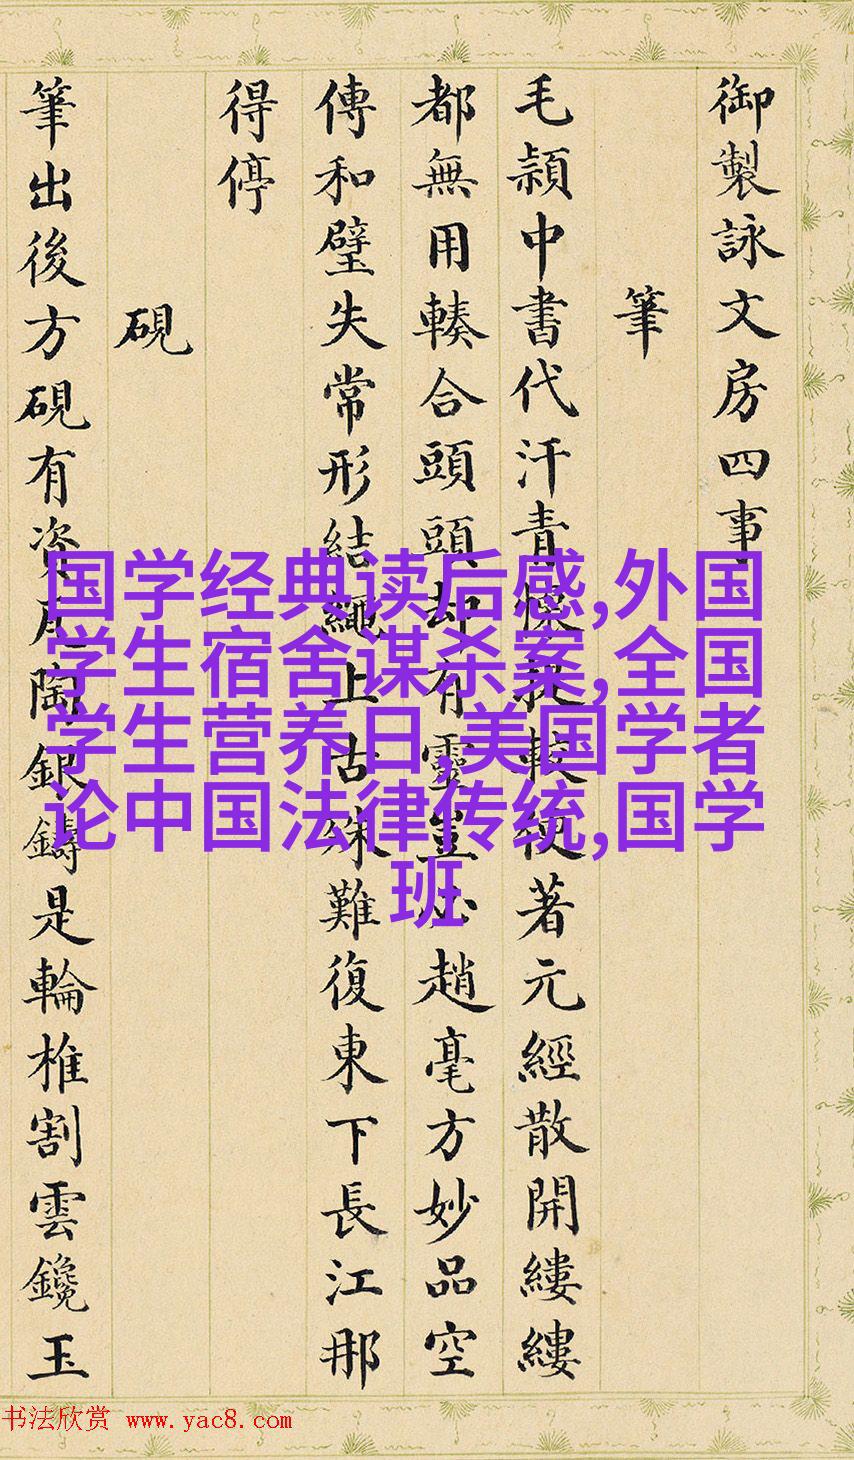 御製詠文房四事
筆
毛頴中書代汗青較便著元經散開縷縷
都無用輳合頭頭却有靈豈必趙毫方妙品空
傳和璧失常形結繩上古殊難復東下長江那
得停
硯
筆出後方硯有資瓦陶銀鑄是輪椎割雲鑱玉
国学经典读后感,外国
学生宿舍谋杀案,全国
学生营养日,美国学者
论中国法律传统,国学
班
书法欣赏 www.yac8.com